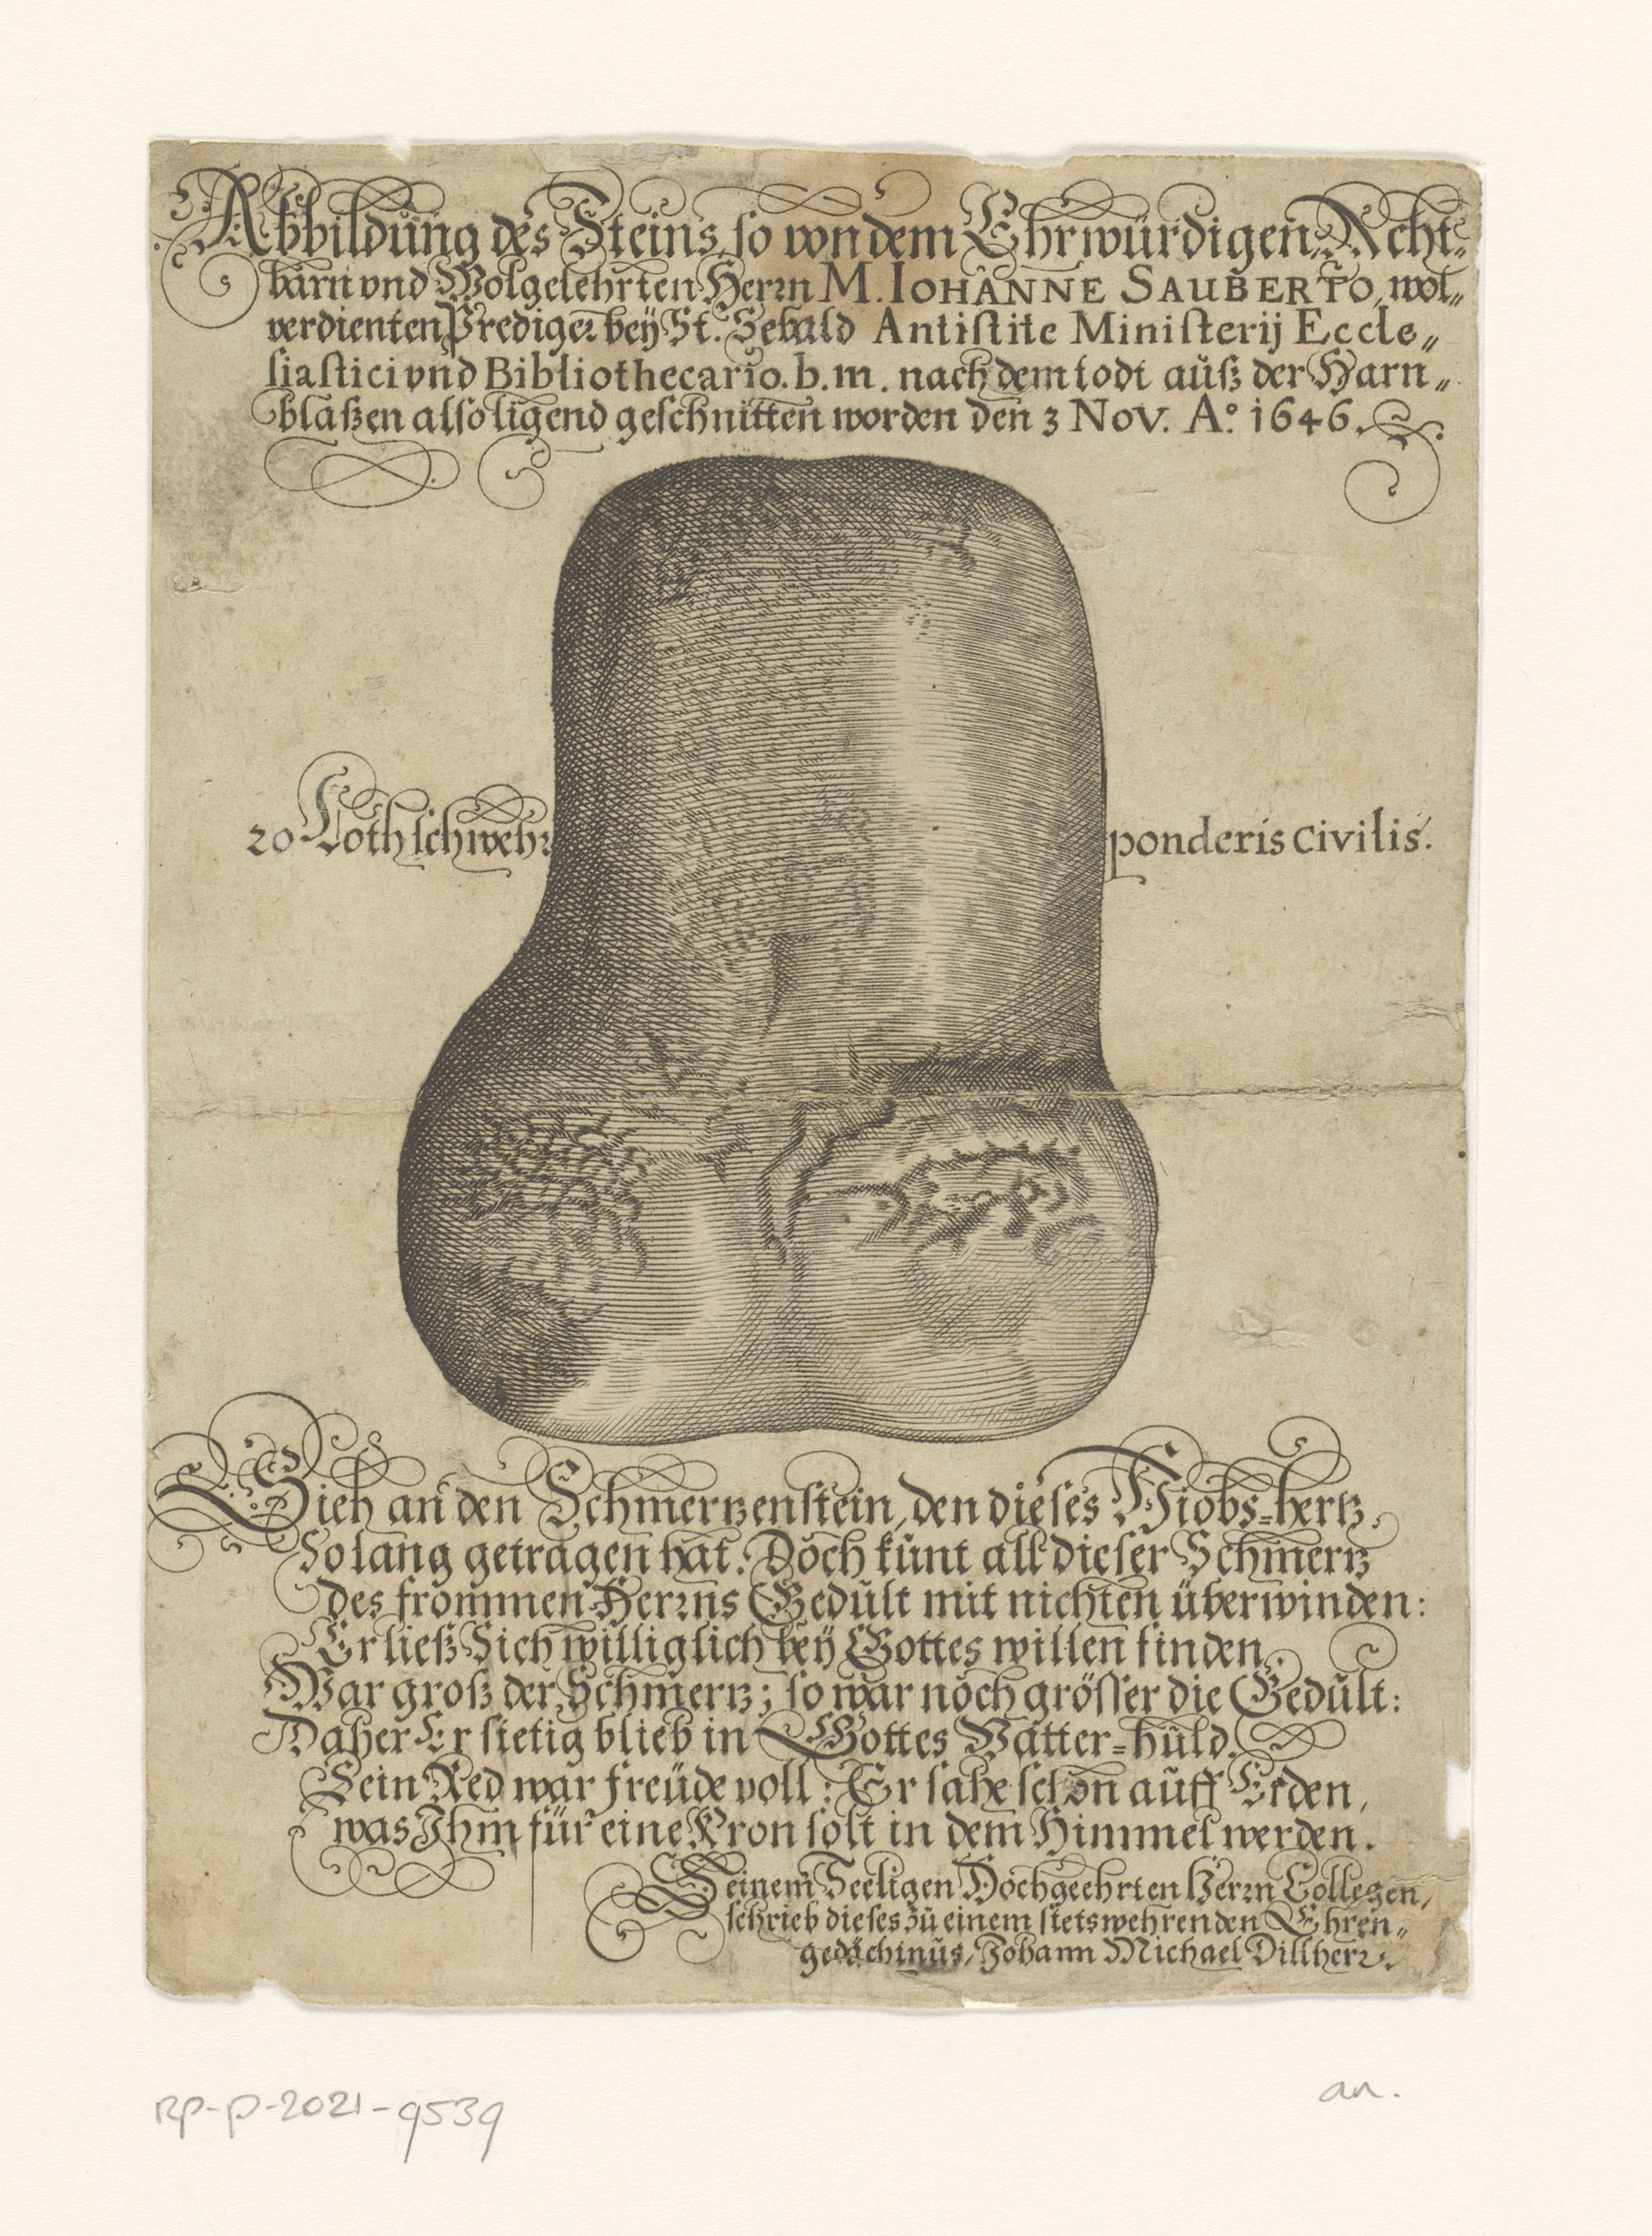 Abbildung des Steins, so von dem Ehrwürdigen, Acht-
barn vnd Wolgelehrten Herrn M. IOHANNE SAUBERTO, wol„
verdienten Prediger bey St. Sebald Antiſtite Miniſterij Eccle„
ſiaſtici vnd Bibliothecario. b. m. nach dem todt auß der Harn„
blaßen alſo ligend geſchnitten worden den 3 Nov. A.º 1646.
20 Loth ſchwehr ponderis civilis.
Sieh an den Schmertzenſtein, den dieſes Hiobs-hertz,
So lang getragen hat. Doch kunt all dieſer Schmertz
des frommen Herrns Gedult mit nichten überwinden:
Er ließ Sich williglich bey Gottes willen finden.
War groß der Schmertz; ſo war noch gröſſer die Gedult:
Daher Er ſtetig blieb in Gottes Vatter-huld.
Sein Red war freüde voll: Er ſahe ſchon auff Erden,
was Ihm für eine Kron ſolt in dem Himmel werden.
Seinem Seeligen Hochgeehrten Herrn Collegen,
ſchrieb dieſes zu einem ſtetswehrenden Ehren„
gedächtnus, Johann Michael Dillherr.
RP-P-2021-9539
an.